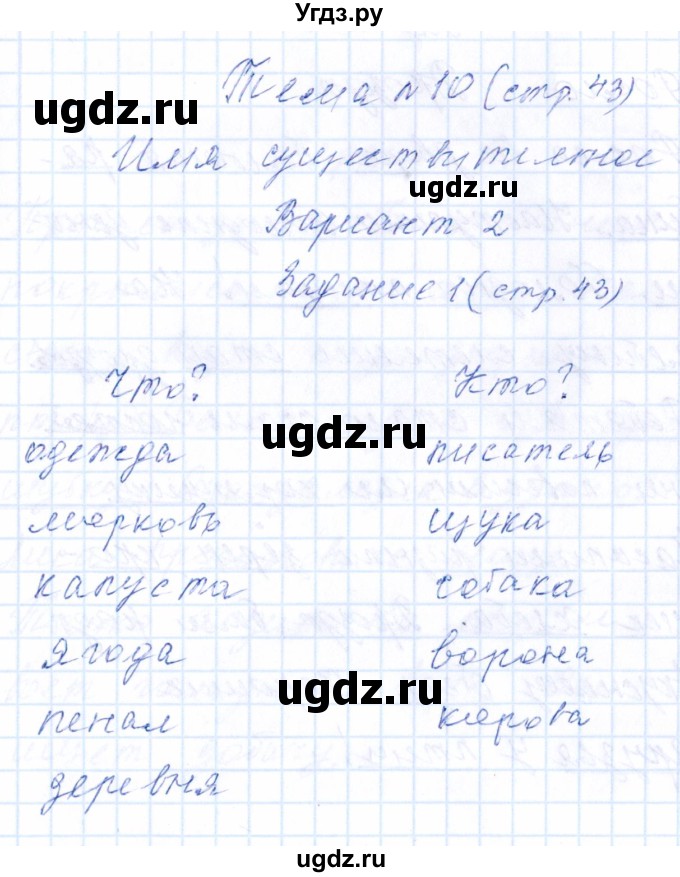 Угдз.ру
Тема №10 (стр. 43)
ugdz.ru
Имя существительное
ugdz.ru
Вариант 2
Задание 1 (стр. 43)
Что? Кто?
ugdz.ru
одежда писатель
морковь щука
капуста собака
ягода ворона
ugdz.ru
пенал корова
деревня
ugdz.ru